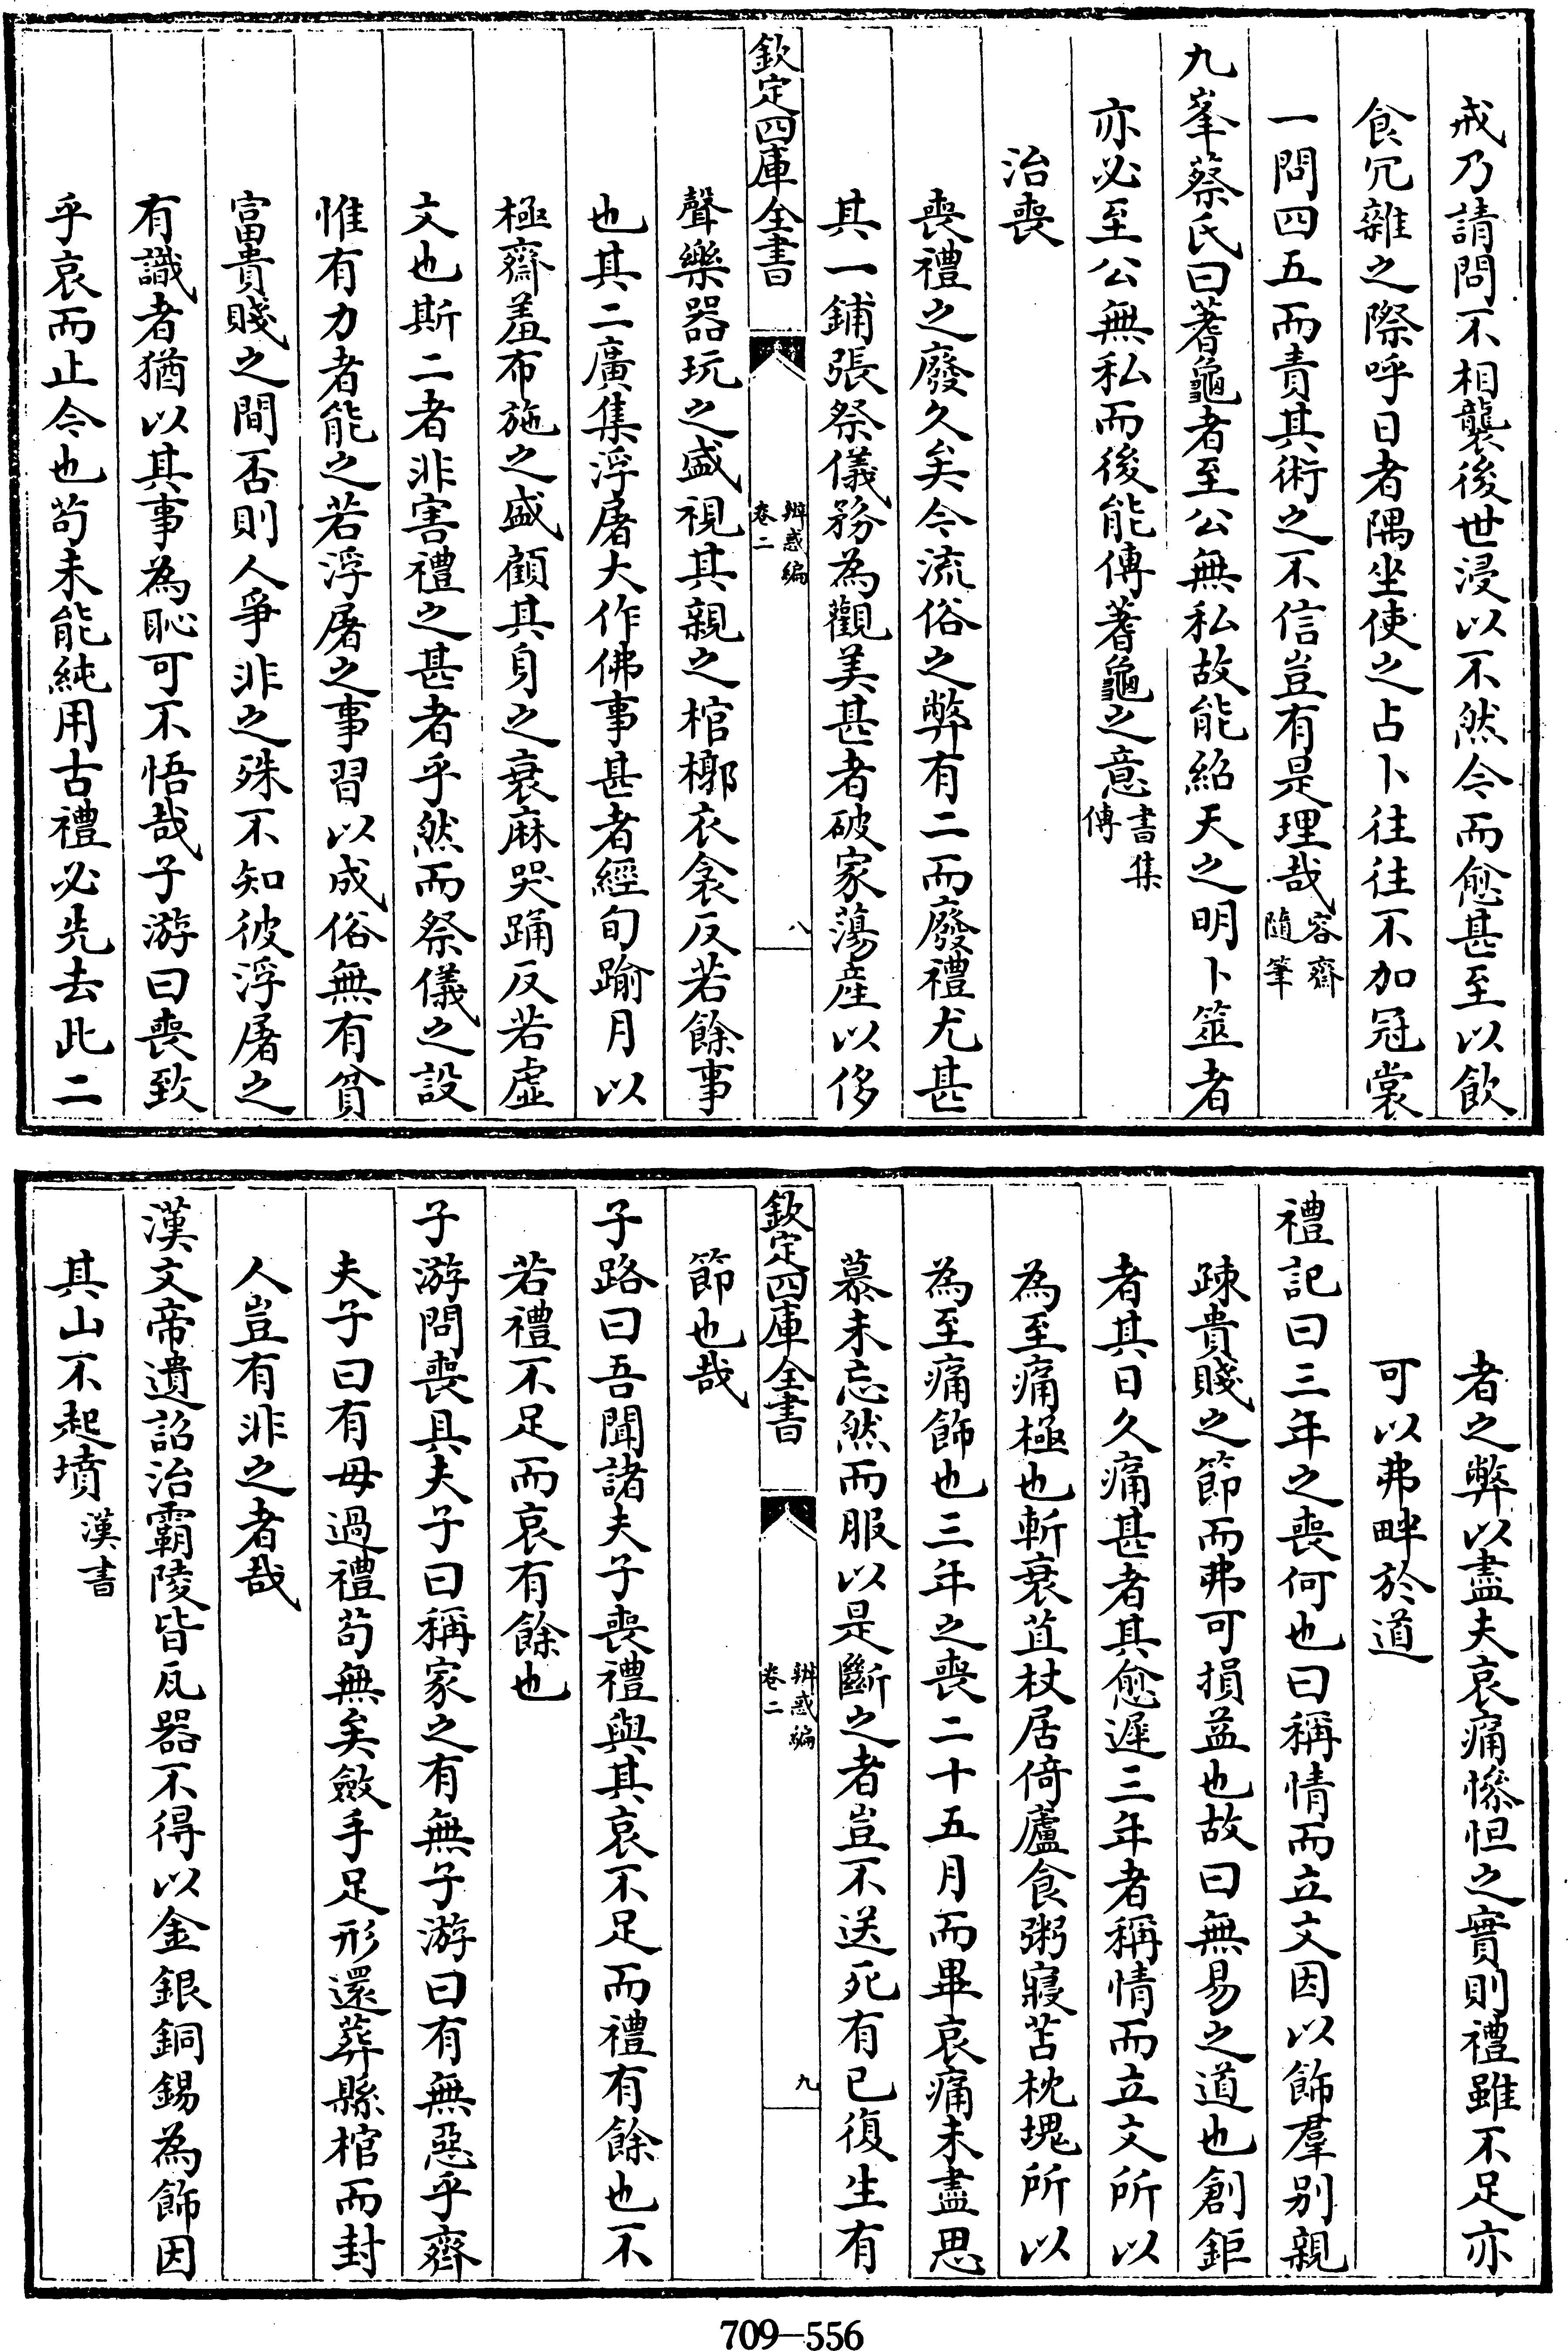 戒乃請問不相襲後世浸以不然今而愈甚至以飲
食冗雜之際呼日者隅坐使之占卜往往不加冠裳
一問四五而責其術之不信豈有是理哉容齋隨筆
九峯蔡氏曰蓍龜者至公無私故能紹天之明卜筮者
亦必至公無私而後能傳蓍龜之意書集傳
治喪
喪禮之廢久矣今流俗之弊有二而廢禮尤甚
其一鋪張祭儀務為觀美甚者破家蕩產以侈
欽定四庫全書
辨惑編
卷二
八
聲樂器玩之盛視其親之棺槨衣衾反若餘事
也其二廣集浮屠大作佛事甚者經旬踰月以
極齋羞布施之盛顧其身之衰麻哭踊反若虛
文也斯二者非害禮之甚者乎然而祭儀之設
惟有力者能之若浮屠之事習以成俗無有貧
富貴賤之間否則人爭非之殊不知彼浮屠之
有識者猶以其事為恥可不悟哉子游曰喪致
乎哀而止今也苟未能純用古禮必先去此二
者之弊以盡夫哀痛慘怛之實則禮雖不足亦
可以弗畔於道
禮記曰三年之喪何也曰稱情而立文因以飾羣別親
踈貴賤之節而弗可損益也故曰無易之道也創鉅
者其日久痛甚者其愈遲三年者稱情而立文所以
為至痛極也斬衰苴杖居倚廬食粥寢苫枕塊所以
為至痛飾也三年之喪二十五月而畢哀痛未盡思
慕未忘然而服以是斷之者豈不送死有已復生有
欽定四庫全書
辨惑編
卷二
九
節也哉
子路曰吾聞諸夫子喪禮與其哀不足而禮有餘也不
若禮不足而哀有餘也
子游問喪具夫子曰稱家之有無子游曰有無惡乎齊
夫子曰有毋過禮苟無矣斂手足形還葬縣棺而封
人豈有非之者哉
漢文帝遺詔治霸陵皆瓦器不得以金銀銅錫為飾因
其山不起墳漢書
709—556